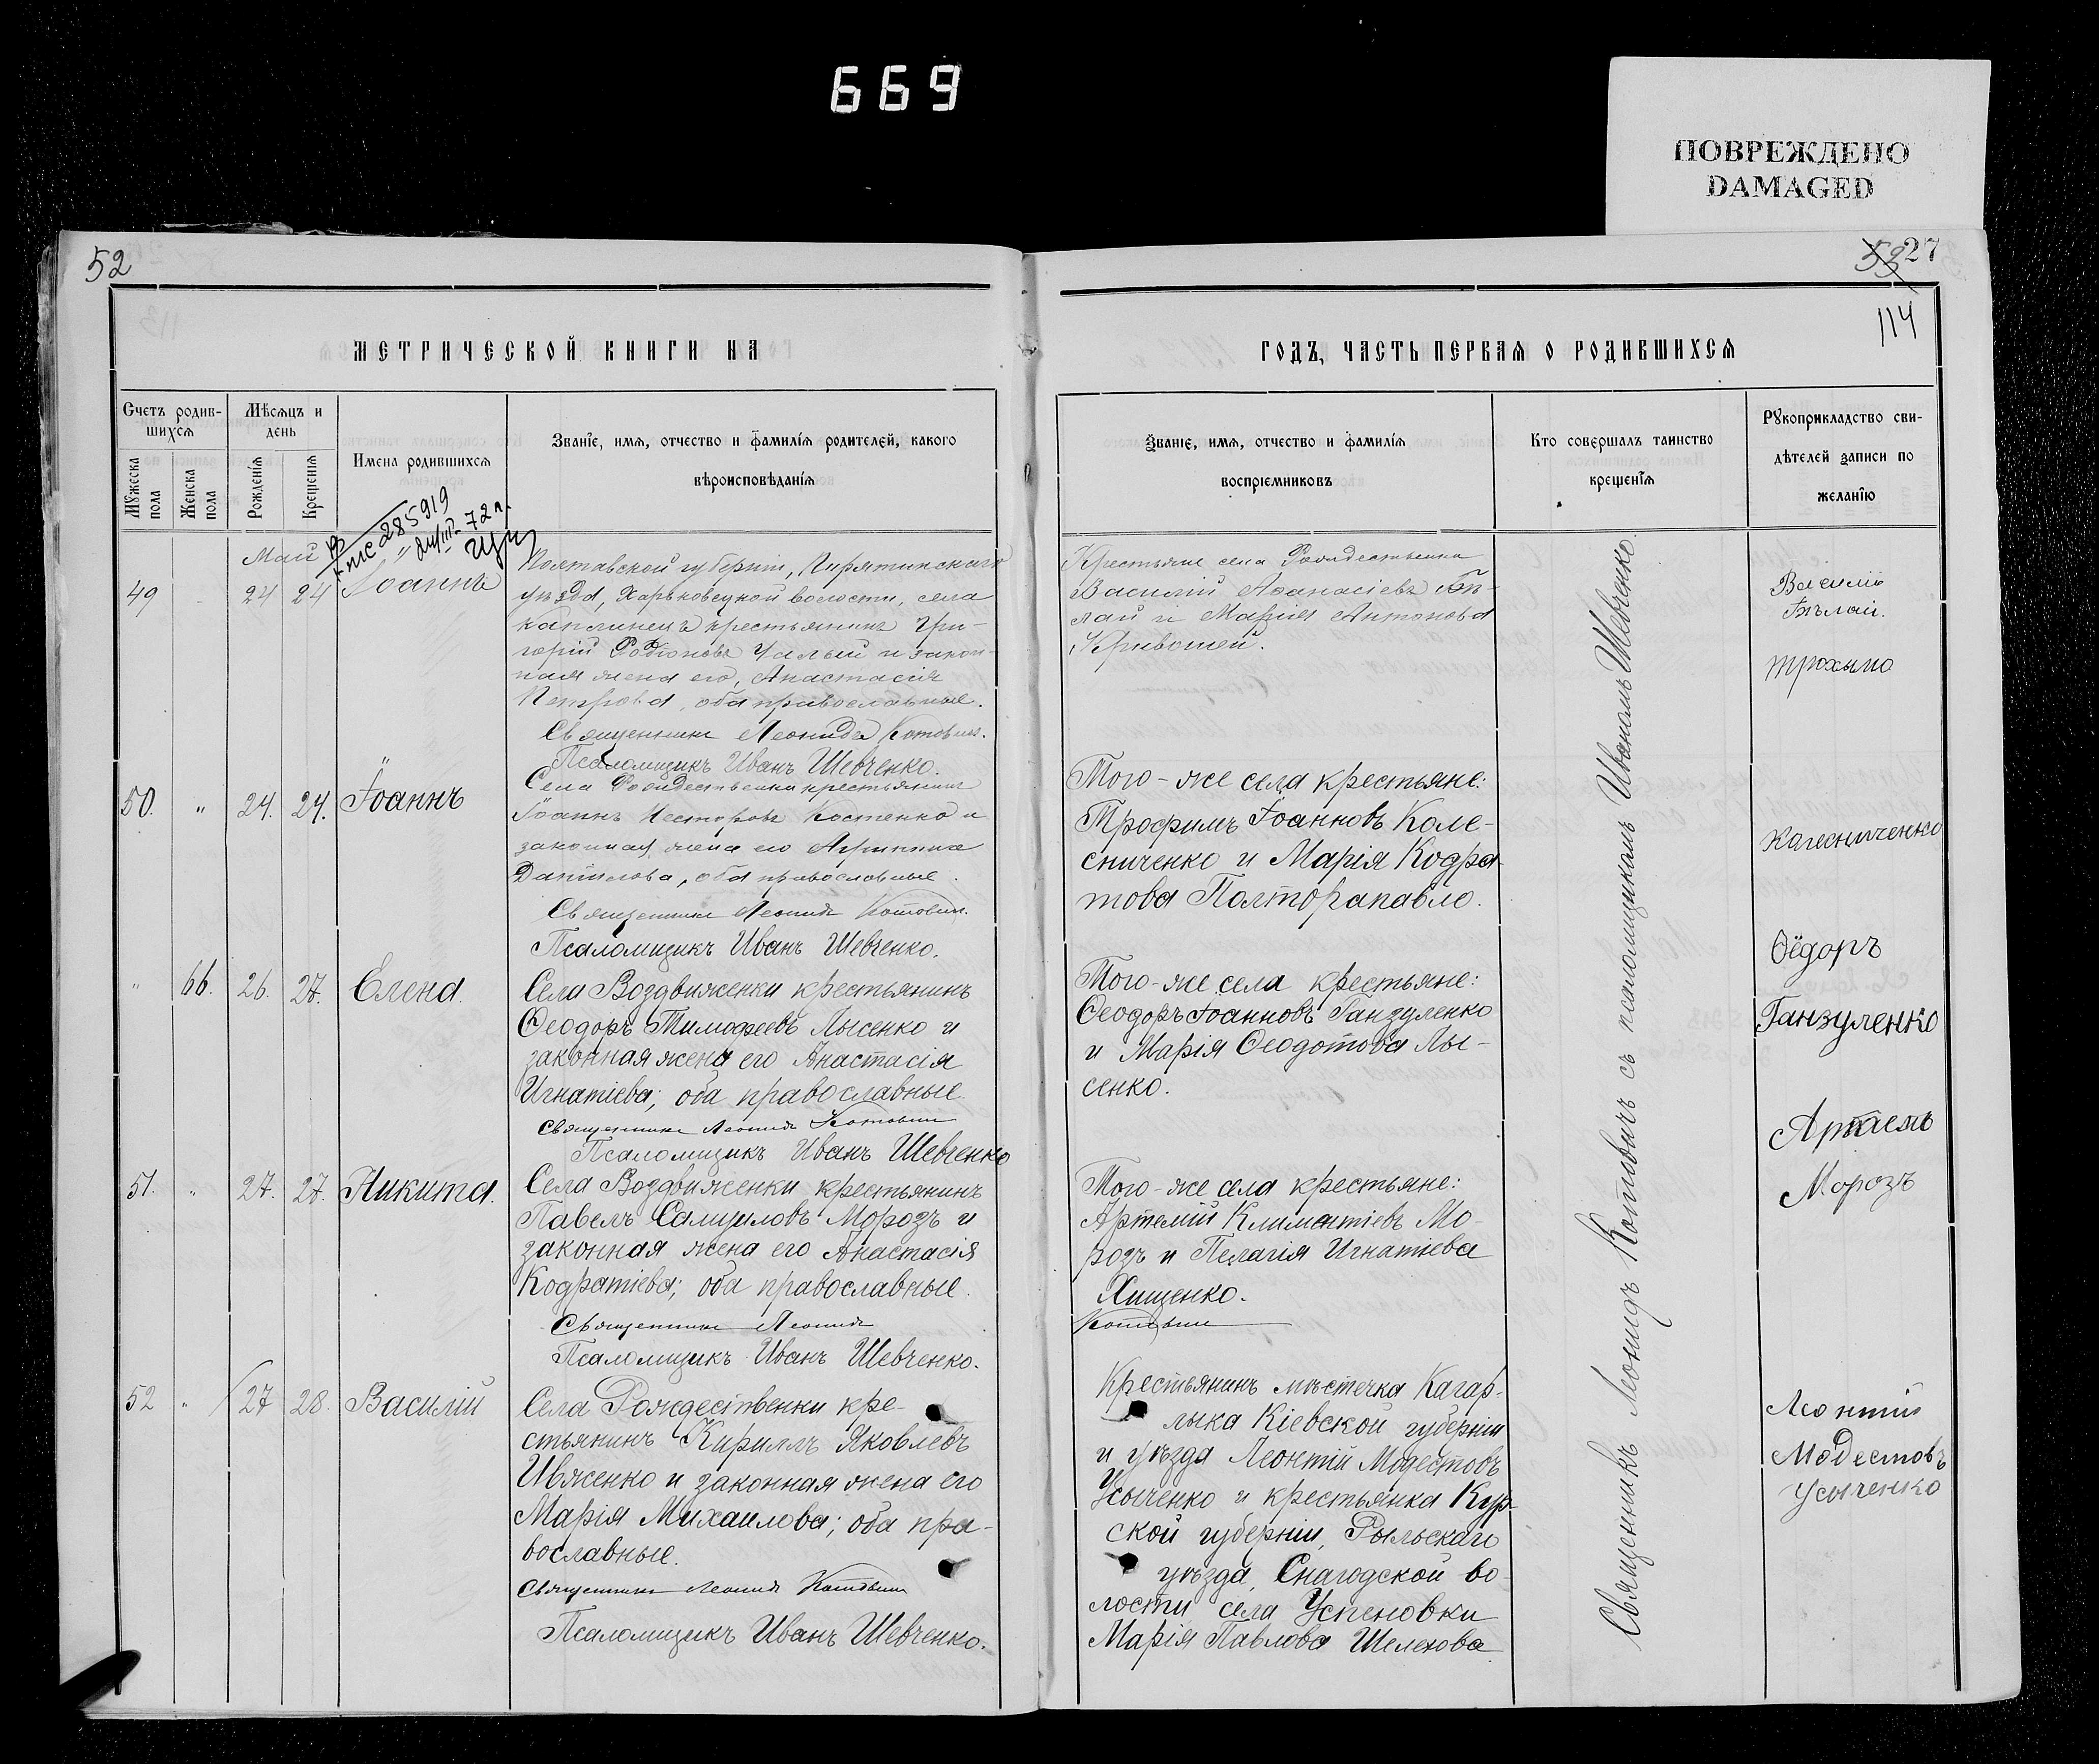 669
ПОВРЕЖДЕНО
DAMAGED
52
53 27
114
МЕТРИЧЕСКОЙ КНИГИ НА
ГОДЪ, ЧАСТЬ ПЕРВАЯ О РОДИВШИХСЯ
Счетъ родив-
шихся
Мѣсяцъ и
день
Мужеска
пола
Женска
пола
Рожденія
Крещенія
Имена родившихся
Званіе, имя, отчество и фамилія родителей, какого
вѣроисповѣданія
Званіе, имя, отчество и фамилія
воспріемниковъ
Кто совершалъ таинство
крещенія
Рукоприкладство сви-
дѣтелей записи по
желанію
285919
72 г.
Май
49 24 24 Іоаннъ
Полтавской губерніи, Пирятинскаго
уѣзда, Харьковецкой волости, села
Каплинецъ крестьянинъ Гри-
горій Родіоновъ Чалый и закон-
ная жена его, Анастасія
Петрова, оба православные.
Священникъ Леонидъ Котович.
Псаломщикъ Иванъ Шевченко.
Крестьяне села Рождественки
Василій Аѳанасіевъ Бѣ-
лай и Марія Антонова
Кривошей.
Василій
Бѣлай.
50. " 24. 24. Іоаннъ
Села Рождественки крестьянинъ
Іоаннъ Несторовъ Костенко и
законная жена его Агриппина
Даніилова, оба православные.
Священникъ Леонидъ Котович.
Псаломщикъ Иванъ Шевченко.
Того-же села крестьяне:
Трофимъ Іоанновъ Коле-
сниченко и Марія Кодра-
това Полторапавло.
трохыма
Калесниченко
" 66. 26. 27. Елена.
Села Воздвиженки крестьянинъ
Ѳеодоръ Тимофеевъ Лысенко и
законная жена его Анастасія
Игнатіева; оба православные.
Священникъ Леонидъ Котович
Псаломщикъ Иванъ Шевченко
Того-же села крестьяне:
Ѳеодоръ Іоанновъ Ганзуленко
и Марія Ѳеодотова Лы-
сенко.
Ѳёдоръ
Ганзуленко
51. " 27. 27. Никита.
Села Воздвиженки крестьянинъ
Павелъ Самуиловъ Морозъ и
законная жена его Анастасія
Кодратіева; оба православные.
Священникъ Леонидъ
Котович
Псаломщикъ Иванъ Шевченко.
Того-же села крестьяне:
Артемій Климентіевъ Мо-
розъ и Пелагія Игнатіева
Хищенко.
Артаемъ
Морозъ
52 " 27 28. Василій
Села Рождественки кре-
стьянинъ Кириллъ Яковлевъ
Ивженко и законная жена его
Марія Михаилова; оба пра-
вославные.
Священникъ Леонидъ Котович
Псаломщикъ Иванъ Шевченко.
Крестьянинъ мѣстечка Кагар-
лыка Кіевской губерніи
и уѣзда Леонтій Модестовъ
Усыченко и крестьянка Кур-
ской губерніи, Рыльскаго
уѣзда, Снагодской во-
лости, села Успеновки
Марія Павлова Шелехова.
Леонтій
Модестовъ
Усыченко
Священникъ Леонидъ Котовичъ съ псаломщикомъ Иваномъ Шевченко.